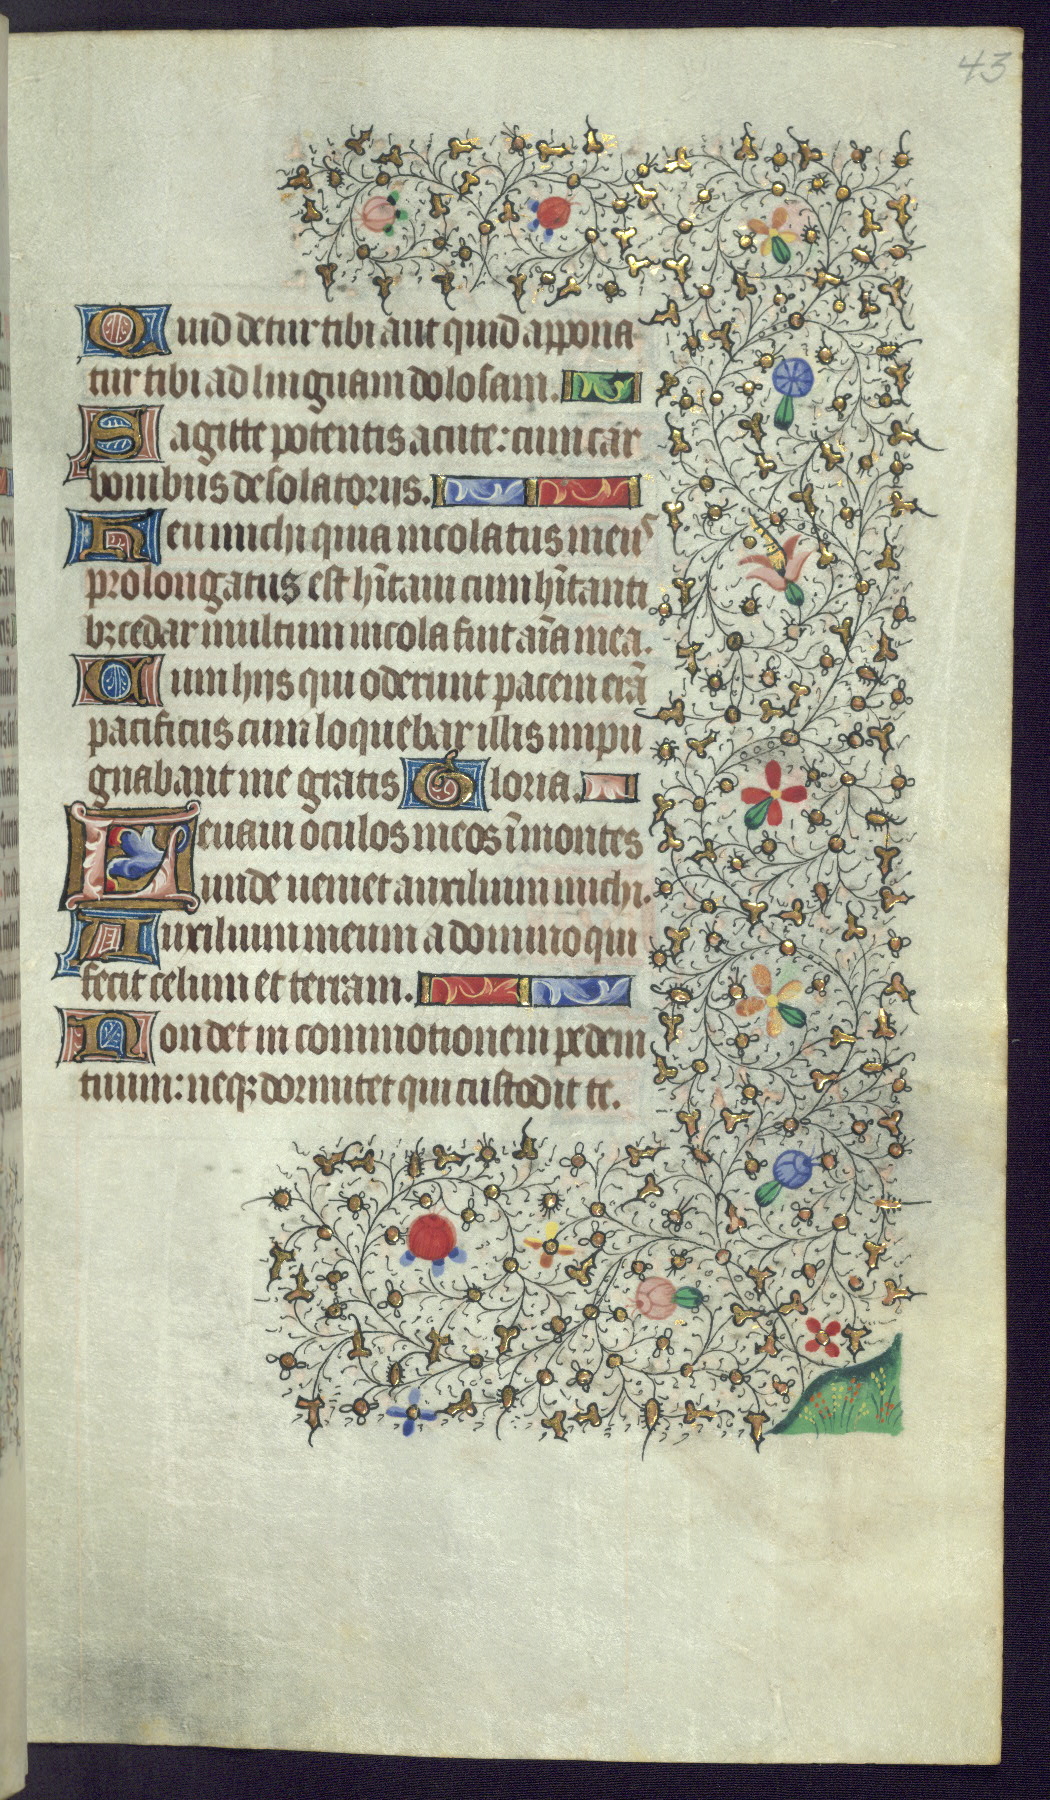 43
Quid detur tibi aut quid appona
tur tibi ad linguam dolosam.
Sagitte potentis acute: cum car
bonibus desolatoriis.
Heu michi quia incolatus meus
prolongatus est hītaui cum hītanti
bꝫ cedar multum incola fuit aīa mea.
Cum hiis qui oderunt pacem erā
pacificus cum loquebar illis impu
gnabant me gratis Gloria.
Leuaui oculos meos ī montes
unde ueniet auxilium michi.
Auxilium meum a domino qui
fecit celum et terram.
Non det in commotionem pedem
tuum: neqꝫ dormitet qui custodit te.